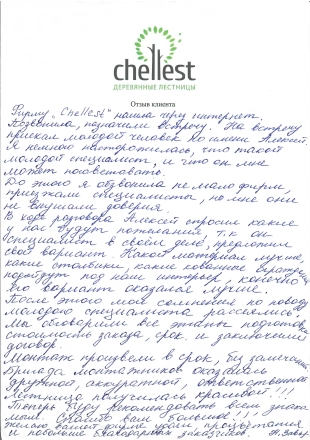 chellest
ДЕРЕВЯННЫЕ ЛЕСТНИЦЫ
Отзыв клиента
Фирму „Chellest" нашла через интернет.
Позвонила, назначили встречу. На встречу
приехал молодой человек по имени Алексей.
Я немного насторожилась, что такой
молодой специалист, и что он мне
может посоветовать.
До этого я обзвонила не мало фирм,
приезжали специалисты, но мне они
не внушали доверия.
В ходе разговора Алексей спросил какие
у нас будут пожелания, т.к он
специалист в своём деле, предложил
свой вариант. Какой материал лучше,
какие столбики, какие кованные
подойдут под наш интерьер, конечно
его вариант оказался лучше.
После этого мои сомнения по поводу
молодого специалиста рассеялись.
Мы обговорили все этапы подготов.
стоимость заказа, срок и заключили
договор.
Монтаж произвели в срок, без замечаний
Бригада монтажников оказалась
дружной, аккуратной, ответственной
Лестница получилась красивой!!!
Теперь буду рекомендовать всем знако
мым. Спасибо вам большое!!!
Желаю вашей фирме удачи, процветания
и побольше благодарных заказчиков.